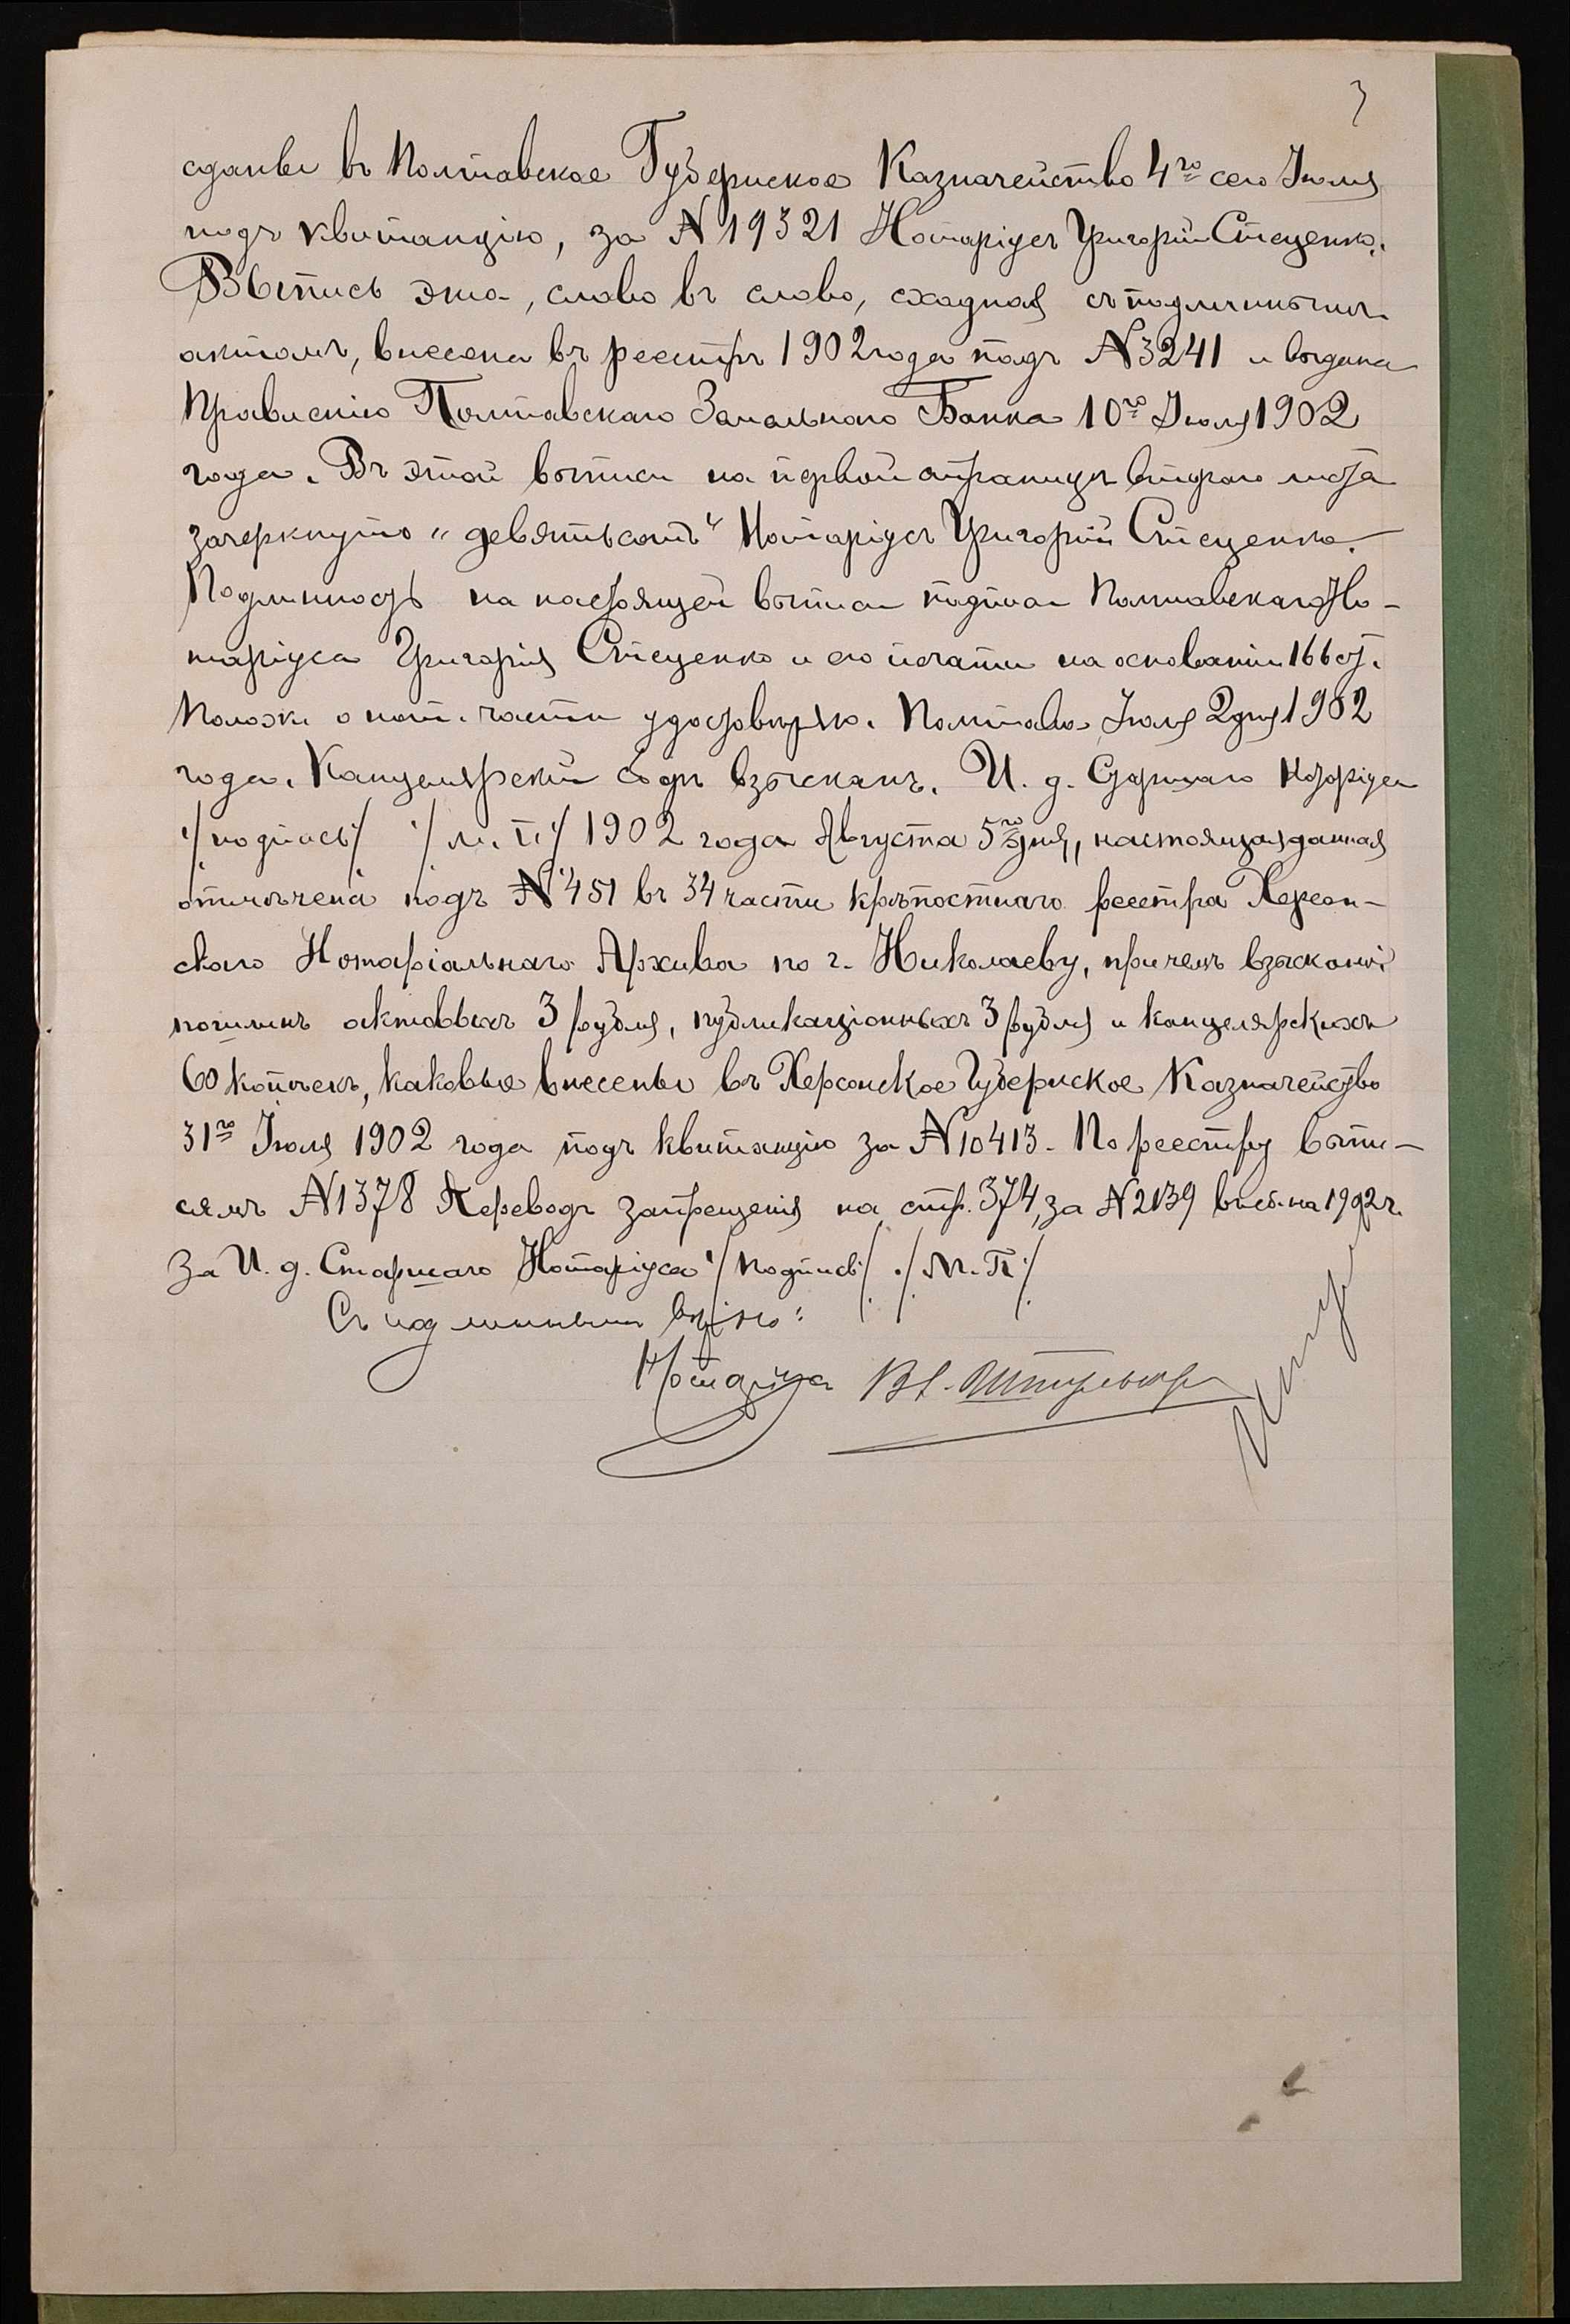 3
сданы въ Полтавское Губернское Казначейство 4го сего Іюля
подъ квитанцію, за N 19321 Нотаріусъ Григорій Стеценко.
Выпись эта, слово въ слово, сходная съ подлиннымъ
актомъ, внесена въ реестръ 1902 года подъ N 3241 и выдана
Правленію Полтавскаго Земельнаго Банка 10го Іюля 1902
года. Въ этой выписи на первой страницѣ второго листа
зачеркнуто "девятьсотъ" Нотаріусъ Григорій Стеценко.
Подлинность на настоящей выписи подписи Полтавскаго Но-
таріуса Григорія Стеценко и его печати на основаніи 166 ст.
Полож. о нот. части удостовѣряю. Полтава Іюля 2 дня 1902
года. Канцелярскій сборъ взысканъ. И. д. Старшаго Нотаріуса
/подпись/ /М. П./ 1902 года Августа 5го дня, настоящая данная
отмѣчена подъ N 451 въ 34 части крѣпостнаго реестра Херсон-
скаго Нотаріальнаго Архива по г. Николаеву, причемъ взысканы
пошлинъ актовыхъ 3 рубля, публикаціонныхъ 3 рубля и канцелярскихъ
60 копѣекъ, каковые внесены въ Херсонское Губернское Казначейство
31го Іюля 1902 года подъ квитанцію за N 10413. По реестру выпи-
сямъ N 1378 Переводъ запрещенія на стр. 374, за N 2139 въ сб. на 1902 г.
За И. д. Старшаго Нотаріуса /подпись/ /М. П./
Съ подлиннымъ вѣрно:
Нотаріуса Вл.